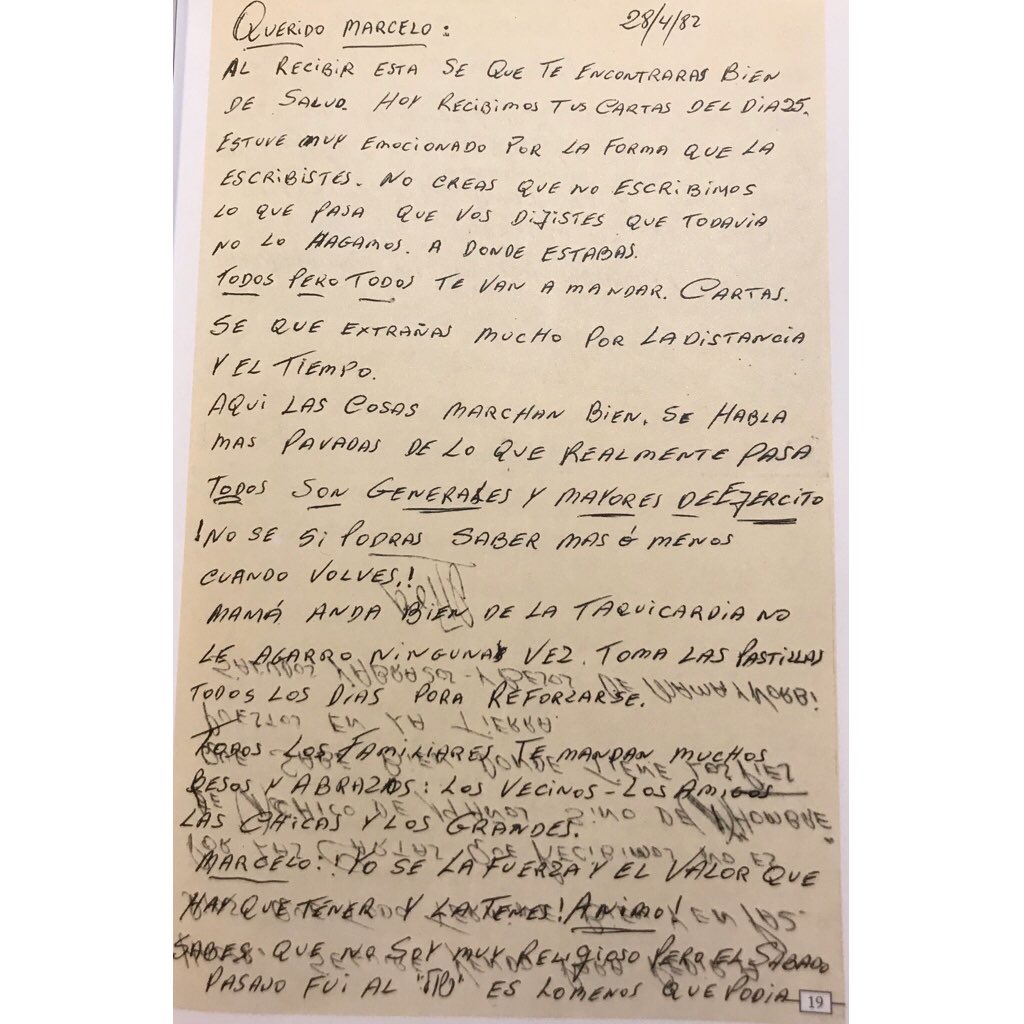 QUERIDO MARCELO: 28/4/82
AL RECIBIR ESTA SE QUE TE ENCONTRARAS BIEN
DE SALUD. HOY RECIBIMOS TUS CARTAS DEL DIA 25.
ESTUVE MUY EMOCIONADO POR LA FORMA QUE LA
ESCRIBISTES. NO CREAS QUE NO ESCRIBIMOS
LO QUE PASA QUE VOS DIJISTES QUE TODAVIA
NO LO HAGAMOS. A DONDE ESTABAS.
TODOS PERO TODOS TE VAN A MANDAR. CARTAS.
SE QUE EXTRAÑAS MUCHO POR LA DISTANCIA
Y EL TIEMPO.
AQUI LAS COSAS MARCHAN BIEN. SE HABLA
MAS PAVADAS DE LO QUE REALMENTE PASA
TODOS SON GENERALES Y MAYORES DE EJERCITO
!NO SE SI PODRAS SABER MAS Ó MENOS
CUANDO VOLVES.!
MAMÁ ANDA BIEN DE LA TAQUICARDIA NO
LE AGARRO NINGUNA VEZ. TOMA LAS PASTILLAS
TODOS LOS DIAS PORA REFORZARSE.
TODOS LOS FAMILIARES TE MANDAN MUCHOS
BESOS Y ABRAZOS: LOS VECINOS - LOS AMIGOS
LAS CHICAS Y LOS GRANDES.
MARCELO:! YO SE LA FUERZA Y EL VALOR QUE
HAY QUE TENER Y LA TENES! ANIMO!
SABES QUE NO SOY MUY RELIGIOSO PERO EL SABADO
PASADO FUI AL ES LO MENOS QUE PODIA
19